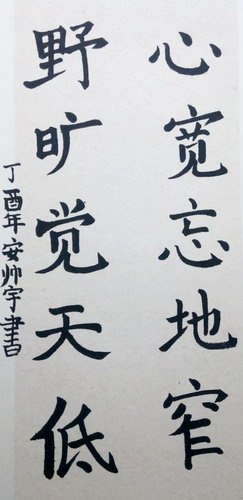 心宽忘地窄
野旷觉天低
丁酉年安帅宇书